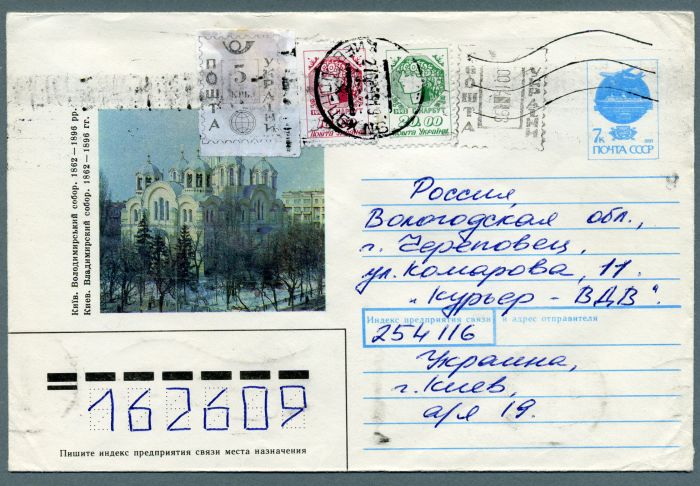 ПОШТА
5-
КРБ.
УКРАЇНИ
Пошта України
20.00
Пошта України
УКРАЇНИ
7к
1991
ПОЧТА СССР
Київ. Володимирський собор. 1862—1896 рр.
Киев. Владимирский собор. 1862—1896 гг.
Россия,
Вологодская обл.,
г. Череповец,
ул. Комарова, 11.
„Курьер - ВДВ".
Индекс предприятия связи и адрес отправителя
254116
Украина,
г. Киев,
а/я 19.
162609
Пишите индекс предприятия связи места назначения